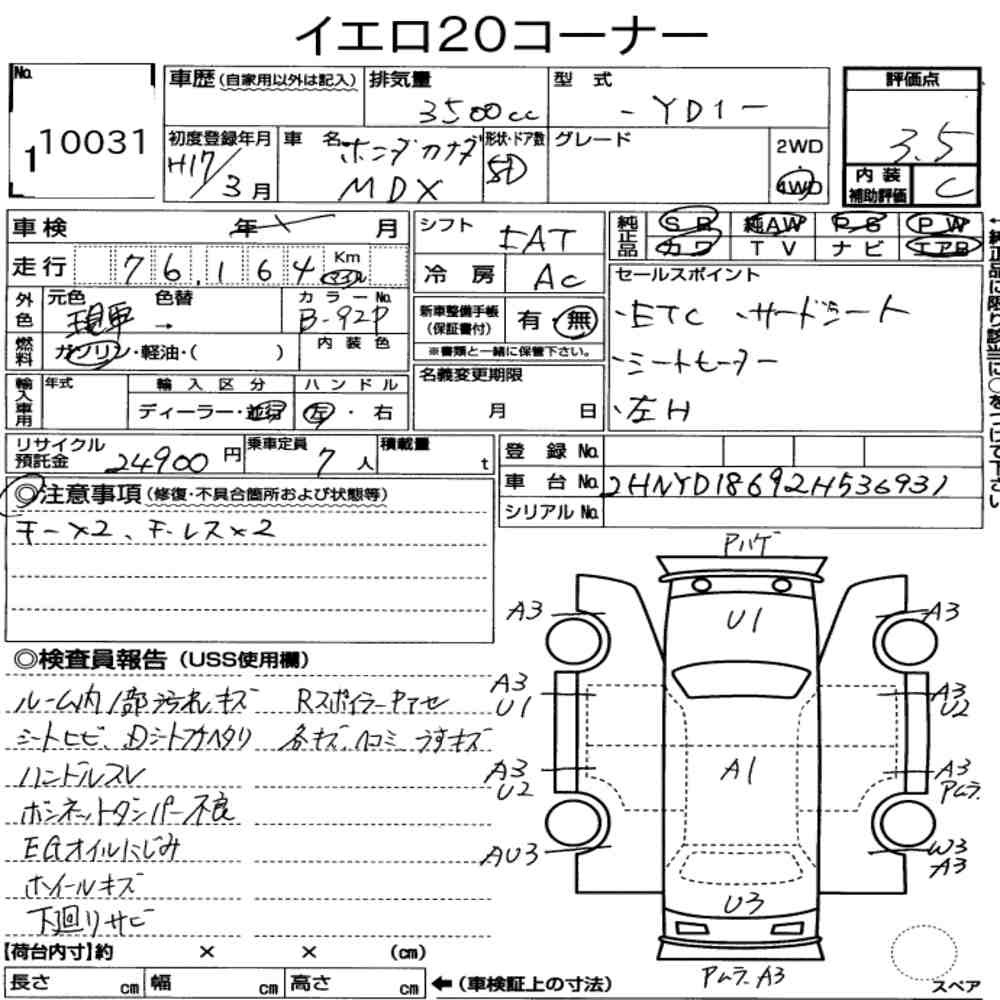 イエロ20コーナー
No.
1 10031
車歴(自家用以外は記入)
排気量
3500cc
型式
-YD1-
評価点
3.5
初度登録年月
H17/3月
車名
ホンダカナダ
MDX
形状・ドア数
5D
グレード
2WD
4WD
内装
補助評価
C
車検 年 月
走行 76,164 Km マイル
シフト
FAT
冷房
AC
純正品
SR 純AW PS PW
カワ TV ナビ エアB
←純正品に限り該当に○をつけて下さい
外色
元色 色替
現車 →
カラーNo.
B-92P
燃料
ガソリン・軽油・( )
内装色
新車整備手帳
(保証書付)
有・無
※書類と一緒に保管下さい。
セールスポイント
・ETC ・サードシート
・シートヒーター
・左H
輸入車用
年式
輸入区分
ディーラー・並行
ハンドル
左・右
名義変更期限
月 日
リサイクル
預託金
24900円
乗車定員
7人
積載量
t
登録No.
車台No.
2HNYD18692H536931
シリアルNo.
◎注意事項(修復・不具合箇所および状態等)
キー×2、キーレス×2
◎検査員報告(USS使用欄)
ルーム内1部汚れ、キズ
Rスポイラーヤアセ
シートヒビ、Dシートヘタリ
各キズ、ヘコミ、うすキズ
ハンドルスレ
ボンネットダンパー不良
EGオイルにじみ
ホイールキズ
下廻りサビ
【荷台内寸】約 × × (cm)
長さ cm 幅 cm 高さ cm
←(車検証上の寸法)
Pハゲ
U1
A3
A3
A3
U1
A3
U2
A3
U2
A1
A3
Pムラ
AU3
W3
A3
U3
Pムラ.A3
スペア